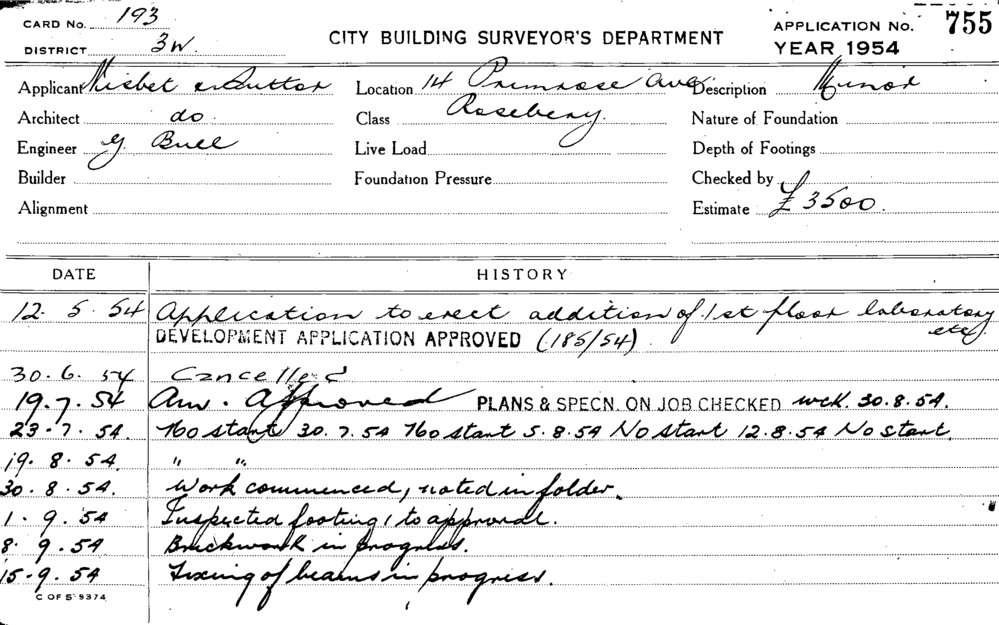 CARD No. 193
DISTRICT 3W.
CITY BUILDING SURVEYOR'S DEPARTMENT
APPLICATION No. 755
YEAR 1954
Applicant Nisbet & Suttor Location 14 Primrose Ave Description Minor
Architect do. Class Rosebery. Nature of Foundation
Engineer G. Bull Live Load Depth of Footings
Builder Foundation Pressure Checked by
Alignment Estimate £3500.
DATE HISTORY
12. 5. 54 Application to erect addition of 1st floor laboratory etc.
DEVELOPMENT APPLICATION APPROVED (185/54).
30. 6. 54 Cancelled
19. 7. 54 Am. Approved PLANS & SPECN. ON JOB CHECKED wck. 30.8.54.
23. 7. 54. No start 30.7.54 No start 5.8.54 No start 12.8.54 No start.
19. 8. 54. " ".
30. 8. 54. Work commenced, noted in folder.
1. 9. 54 Inspected footing, to approval.
8. 9. 54 Brickwork in progress.
15. 9. 54 Fixing of beams in progress.
C OF S 9374